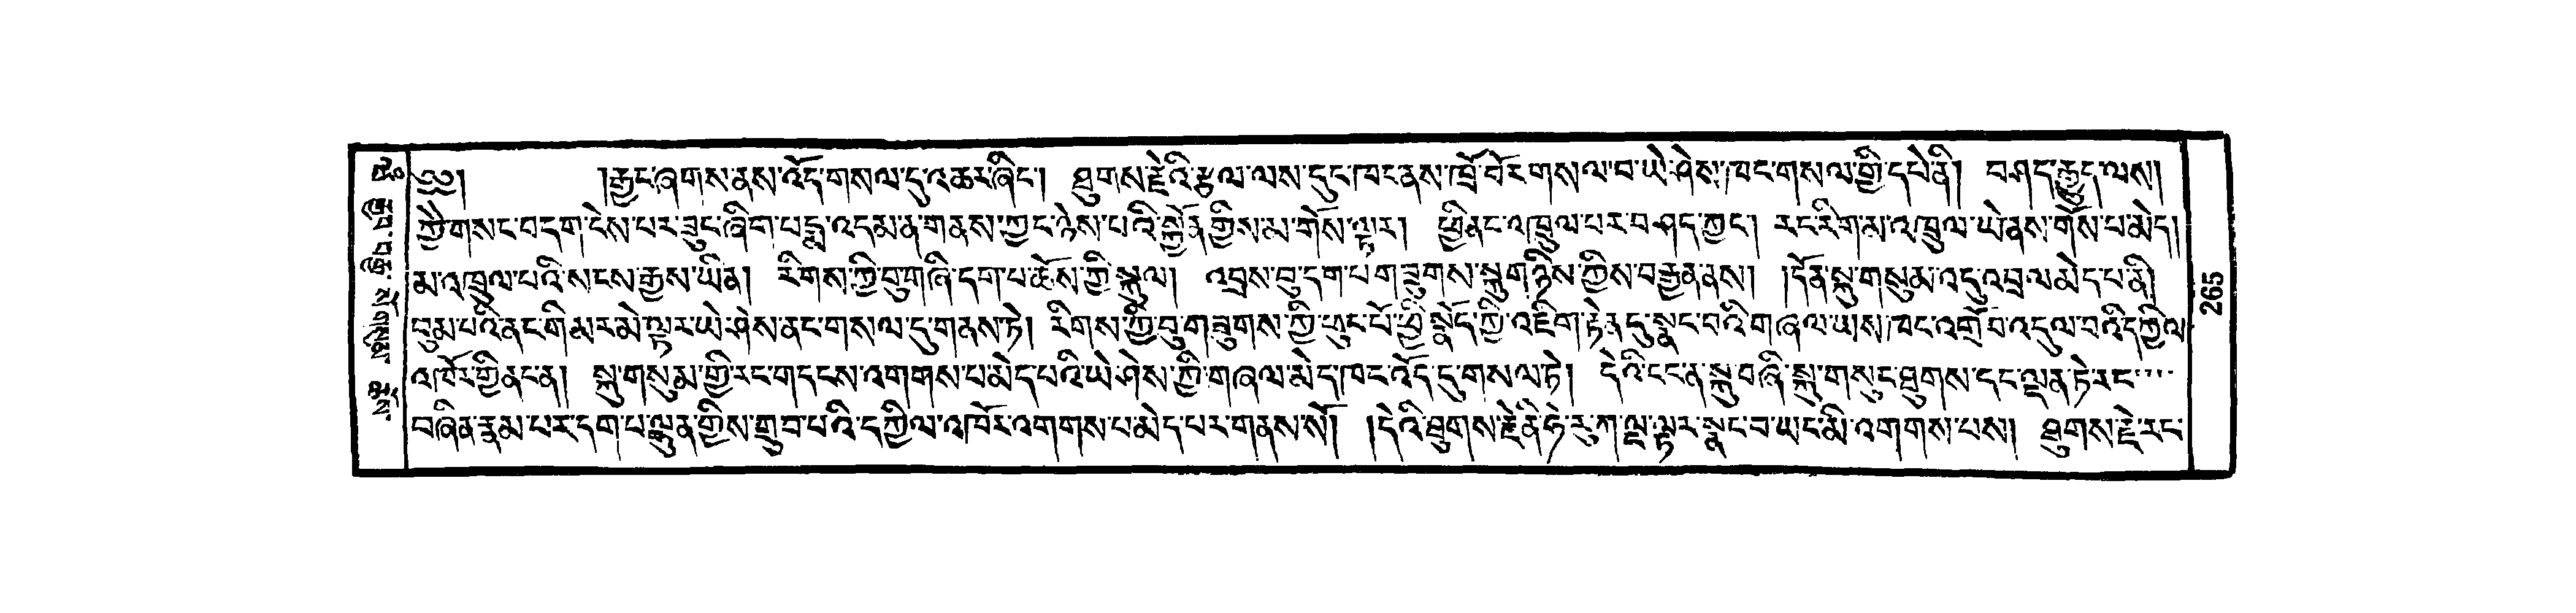 ༄༅། །རྒྱང་ཞགས་ནས་འོད་གསལ་དུ་འཆར་ཞིང་། ཐུགས་རྗེའི་རྩལ་ལས་དུང་ཁང་ནས་ཁྲོ་བོར་གསལ་བ་ཡེ་ཤེས་ཁང་གསལ་གྱི་དཔེ་ནི། བཤད་རྒྱུད་ལས།
ཀྱེ་གསང་བདག་ངེས་པར་ཟུང་ཞིག་པདྨ་འདམ་ན་གནས་ཀྱང་ཉེས་པའི་སྐྱོན་གྱིས་མ་གོས་ལྟར། ཕྱི་ནང་འཁྲུལ་པར་བཤད་ཀྱང་། རང་རིག་མ་འཁྲུལ་ཡེ་ནས་གོས་པ་མེད།
མ་འཁྲུལ་པའི་སངས་རྒྱས་ཡིན། རིགས་ཀྱི་བུ་གཞི་དག་པ་ཆོས་ཀྱི་སྐུལ། འབྲས་བུ་དག་པ་གཟུགས་སྐུ་གཉིས་ཀྱིས་བརྒྱན་ནས། །དོན་སྐུ་གསུམ་འདུ་འབྲལ་མེད་པ་ནི།
བུམ་པའི་ནང་གི་མར་མེ་ལྟར་ཡེ་ཤེས་ནང་གསལ་དུ་གནས་ཏེ། རིགས་ཀྱི་བུ་གཟུགས་ཀྱི་ཕུང་པོ་ཕྱི་སྣོད་ཀྱི་འཇིག་རྟེན་དུ་སྣང་བའི་གཞལ་ཡས་ཁང་འགྲོ་བ་འདུལ་བའི་དཀྱིལ་
འཁོར་གྱི་ནང་ན། སྐུ་གསུམ་གྱི་རང་གདངས་འགགས་པ་མེད་པའི་ཡེ་ཤེས་ཀྱི་གཞལ་མེད་ཁང་འོད་དུ་གསལ་ཏེ། དེའི་ངང་ན་སྐུ་བཞི་སྐུ་གསུང་ཐུགས་དང་ལྡན་ཏེ་རང་
བཞིན་རྣམ་པར་དག་པ་ལྷུན་གྱིས་གྲུབ་པའི་དཀྱིལ་འཁོར་འགགས་པ་མེད་པར་གནས་སོ། །དེའི་ཐུགས་རྗེ་ནི་ཧེ་རུ་ཀ་ལྔ་ལྟར་སྣང་བ་ཡང་མི་འགགས་པས། ཐུགས་རྗེ་རང་
265